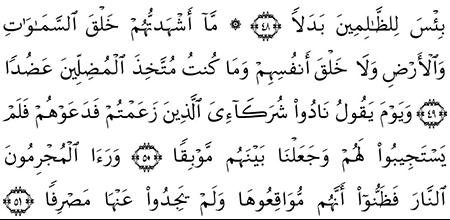 بِئْسَ لِلظَّـٰلِمِينَ بَدَلًا ﴿٤٨﴾ ۞ مَّآ أَشْهَدتُّهُمْ خَلْقَ ٱلسَّمَـٰوَٰتِ
وَٱلْأَرْضِ وَلَا خَلْقَ أَنفُسِهِمْ وَمَا كُنتُ مُتَّخِذَ ٱلْمُضِلِّينَ عَضُدًا
﴿٤٩﴾ وَيَوْمَ يَقُولُ نَادُوا۟ شُرَكَآءِىَ ٱلَّذِينَ زَعَمْتُمْ فَدَعَوْهُمْ فَلَمْ
يَسْتَجِيبُوا۟ لَهُمْ وَجَعَلْنَا بَيْنَهُم مَّوْبِقًا ﴿٥٠﴾ وَرَءَا ٱلْمُجْرِمُونَ
ٱلنَّارَ فَظَنُّوٓا۟ أَنَّهُم مُّوَاقِعُوهَا وَلَمْ يَجِدُوا۟ عَنْهَا مَصْرِفًا ﴿٥١﴾